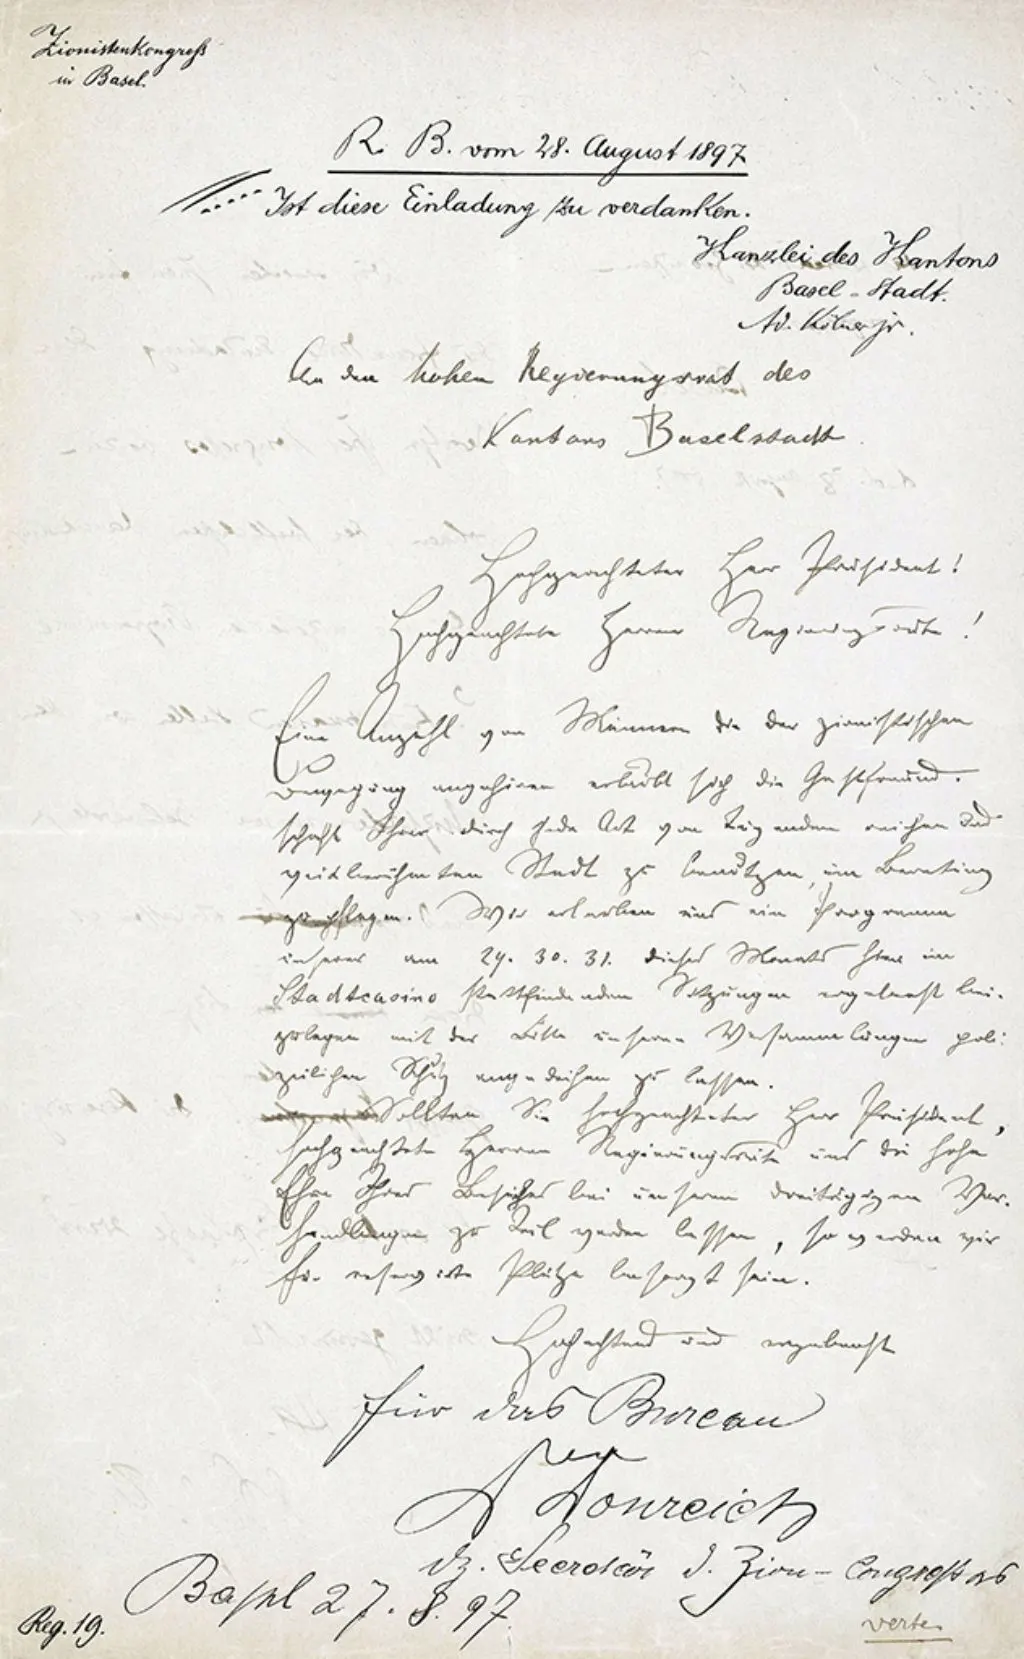 Zionistenkongreß
in Basel.
R. B. vom 28. August 1897
Ist diese Einladung zu verdanken.
Kanzlei des Kantons
Basel-Stadt.
An den hohen Regierungsrat des
Kantons Baselstadt
Hochgeachteter Herr Präsident!
Hochgeachtete Herren Regierungsräte!
Eine Anzahl von Männern die der zionistischen
Bewegung angehören erlaubt sich die Gastfreund-
schaft Ihrer durch jede Art von Tugenden reichen und
weitberühmten Stadt zu benützen, um Beratung
zu pflegen. Wir erlauben uns ein Programm
unserer am 29. 30. 31. dieses Monats hier im
Stadtcasino stattfindenden Sitzungen ergebenst bei-
zulegen mit der Bitte unseren Versammlungen poli-
zeilichen Schutz angedeihen zu lassen.
Sollten Sie hochgeachteter Herr Präsident,
hochgeachtete Herren Regierungsräte uns die hohe
Ehre Ihres Besuches bei unseren dreitägigen Ver-
handlungen zu Teil werden lassen, so werden wir
für reservirte Plätze besorgt sein.
Hochachtend und ergebenst
Für das Bureau
dz. Secretär d. Zion-Congresses
Basel 27. 8. 97.
Reg. 19.
verte